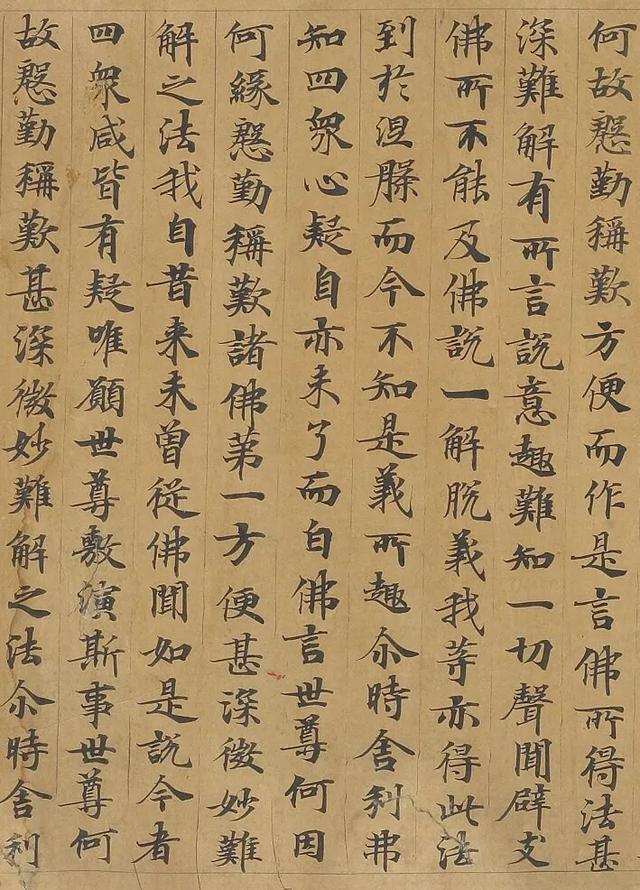 何故慇勤稱歎方便而作是言佛所得法甚
深難解有所言說意趣難知一切聲聞辟支
佛所不能及佛說一解脫義我等亦得此法
到於涅槃而今不知是義所趣尒時舍利弗
知四衆心疑自亦未了而白佛言世尊何因
何緣慇勤稱歎諸佛第一方便甚深微妙難
解之法我自昔来未曾從佛聞如是說今者
四衆咸皆有疑唯願世尊敷演斯事世尊何
故慇勤稱歎甚深微妙難解之法尒時舍利